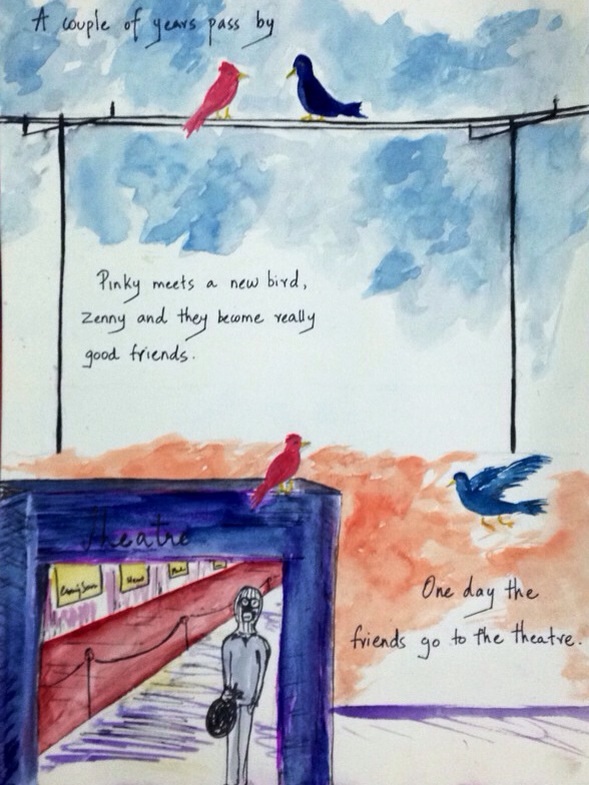 A couple of years pass by
Pinky meets a new bird,
Zenny and they become really
good friends.
Theatre
Coming Soon
One day the
friends go to the theatre.